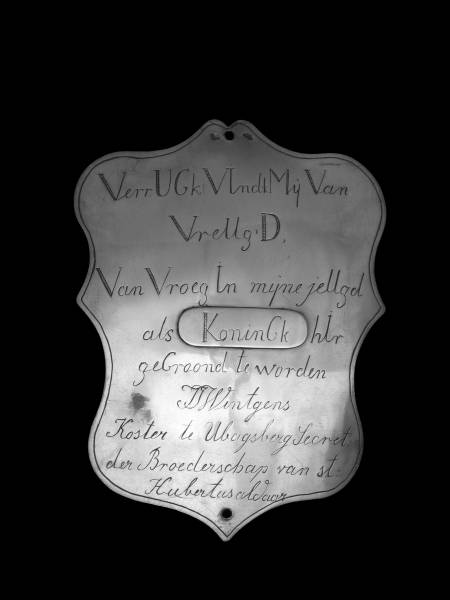 VerrUGkt VIndt Mij Van
VreUg'D,
Van Vroeg In mijne jeUgd
als KoninCk hIr
geCroond te worden
Wintgens
Koster te Ubagsberg Secret
der Broederschap van st.
Hubertus aldaar